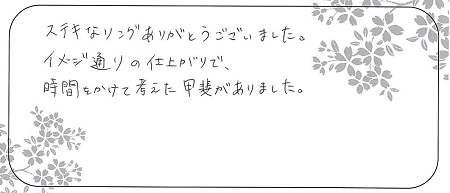 ステキなリングありがとうございました。
イメージ通りの仕上がりで、
時間をかけて考えた甲斐がありました。